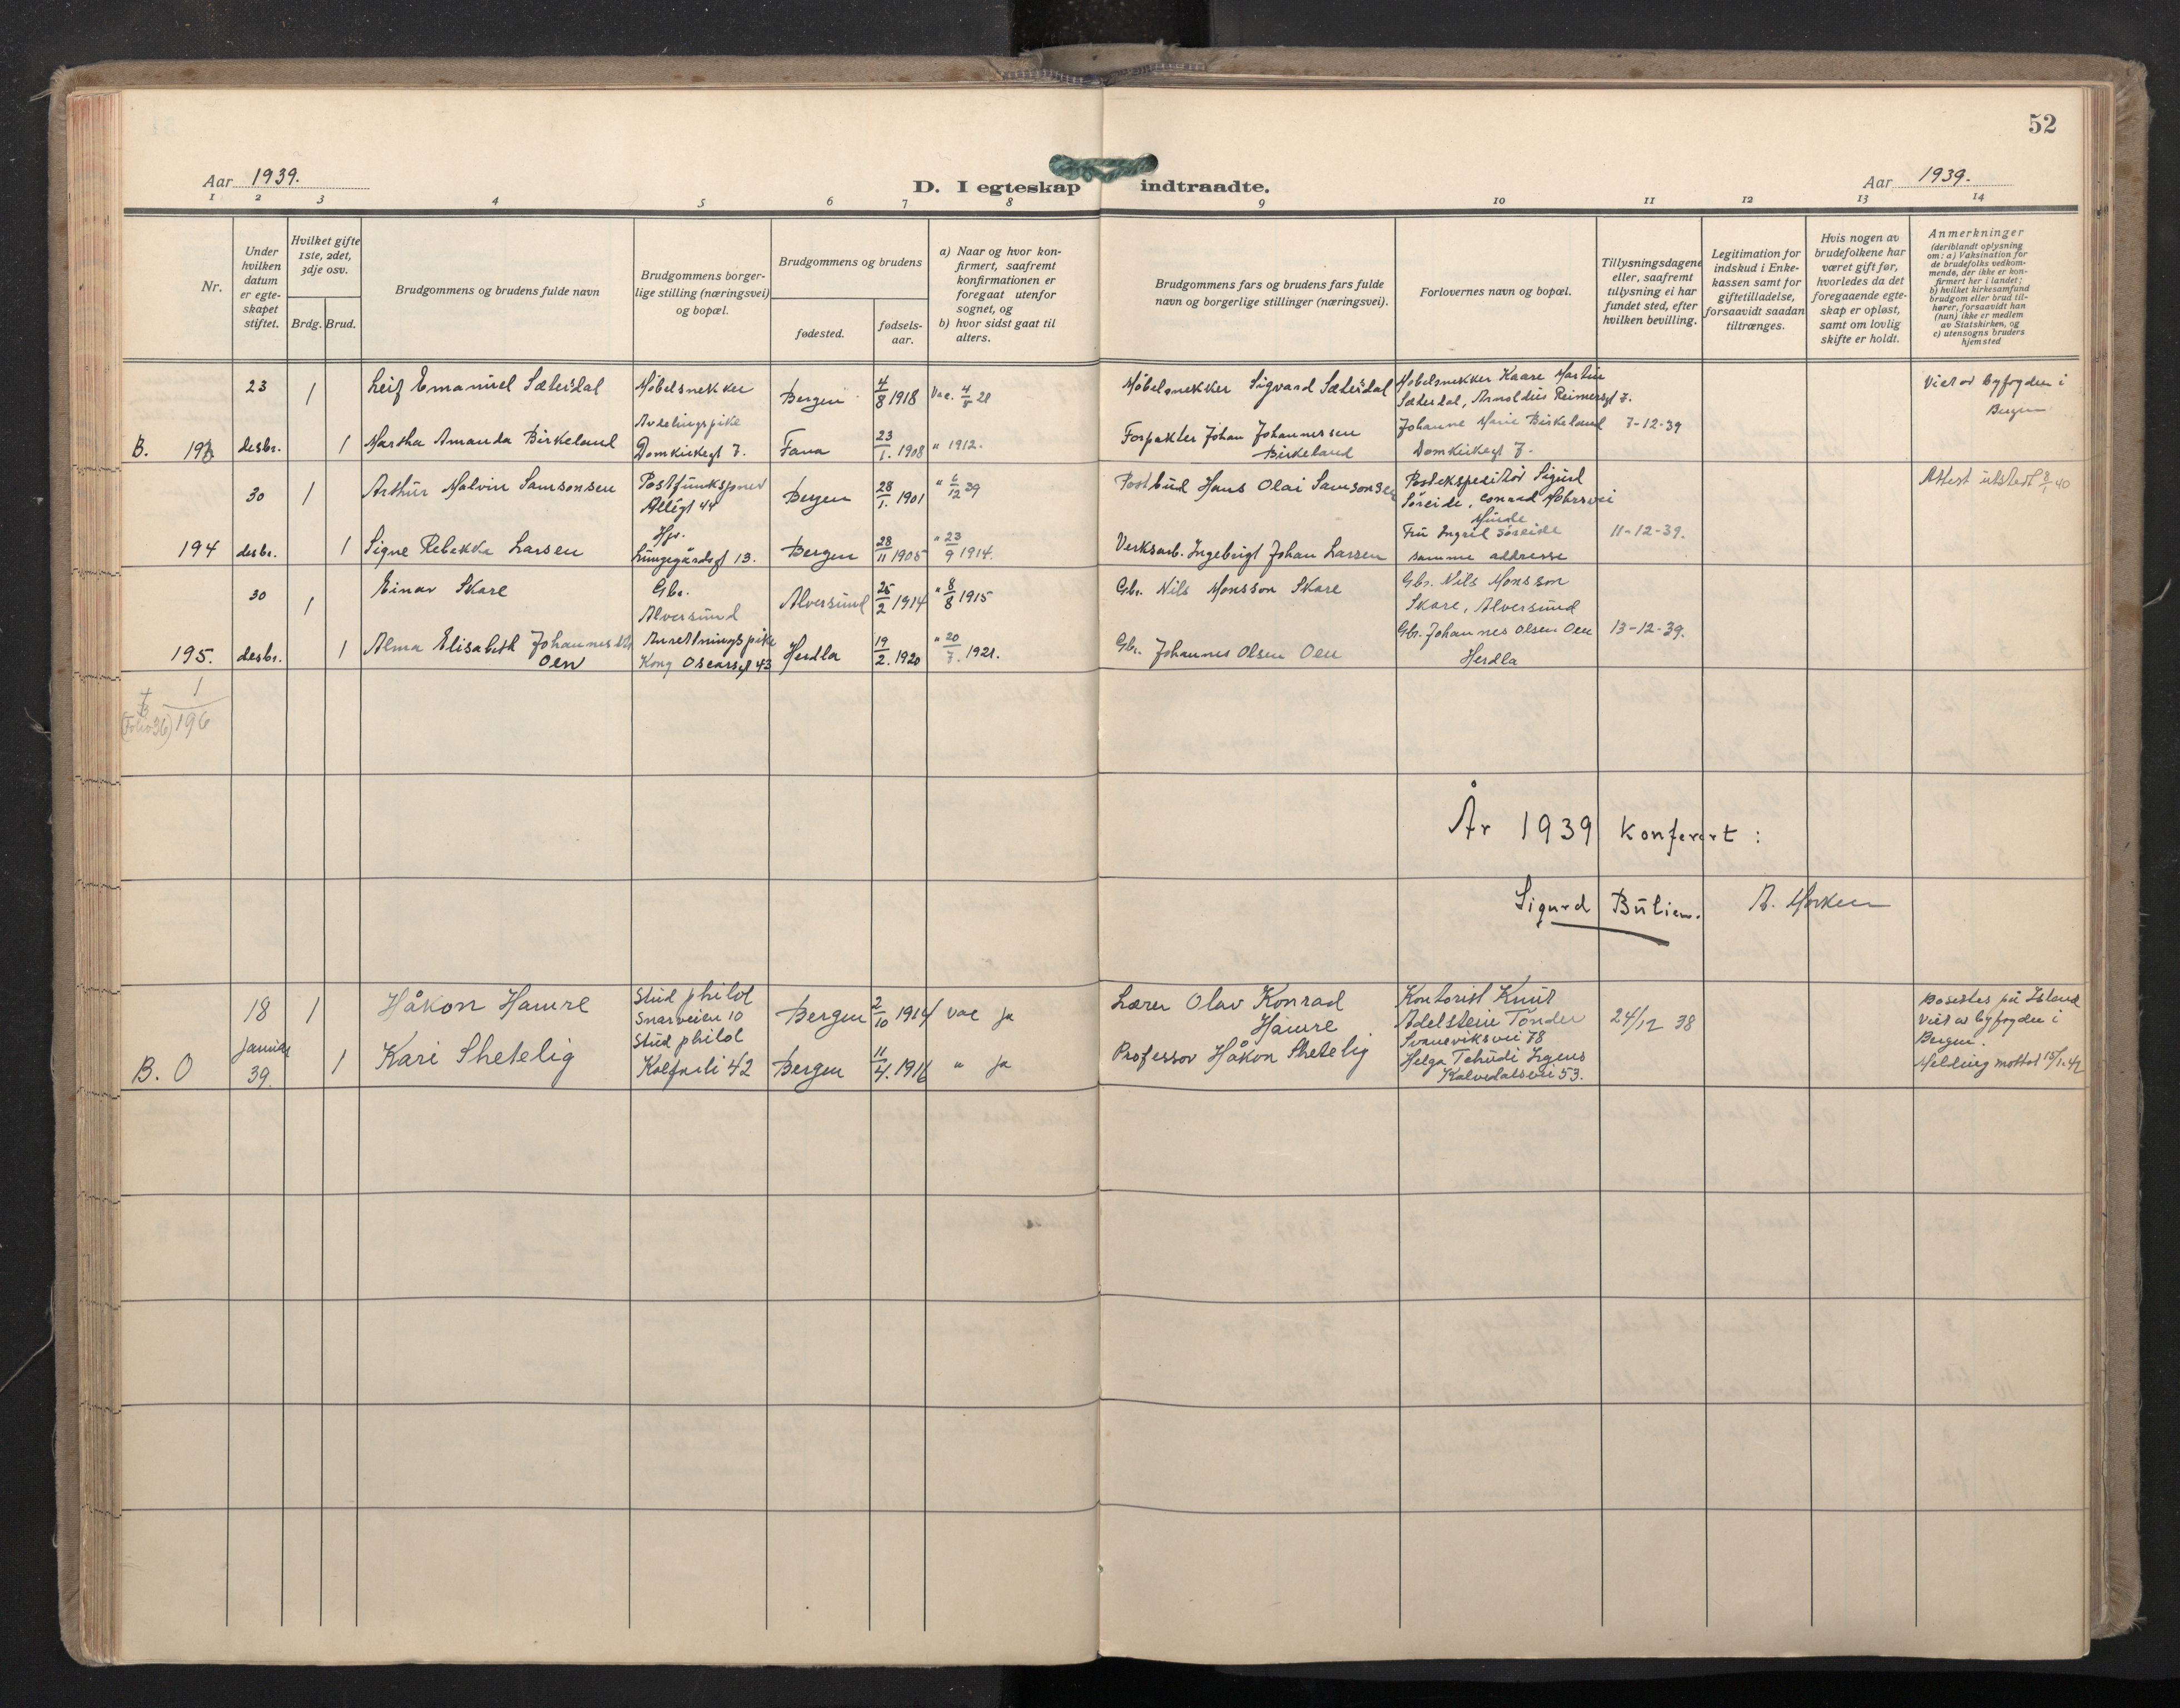 52
Aar 1939.
D. I egteskap indtraadte.
Aar 1939.
1 2 3 4 5 6 7 8 9 10 11 12 13 14
Nr.
Under hvilken datum er egteskapet stiftet.
Hvilket gifte 1ste, 2det, 3dje osv.
Brdg. Brud.
Brudgommens og brudens fulde navn
Brudgommens borgerlige stilling (næringsvei) og bopæl.
Brudgommens og brudens
fødested.
fødselsaar.
a) Naar og hvor konfirmert, saafremt konfirmationen er foregaat utenfor sognet, og
b) hvor sidst gaat til alters.
Brudgommens fars og brudens fars fulde navn og borgerlige stillinger (næringsvei).
Forlovernes navn og bopæl.
Tillysningsdagene eller, saafremt tillysning ei har fundet sted, efter hvilken bevilling.
Legitimation for indskud i Enkekassen samt for giftetilladelse, forsaavidt saadan tiltrænges.
Hvis nogen av brudefolkene har været gift før, hvorledes da det foregaaende egteskap er opløst, samt om lovlig skifte er holdt.
Anmerkninger
(deriblandt oplysning om: a) Vaksination for de brudefolks vedkommende, der ikke er konfirmert her i landet; b) hvilket kirkesamfund brudgom eller brud tilhører, forsaavidt han (hun) ikke er medlem av Statskirken, og c) utensogns bruders hjemsted
23 1 Leif Emanuel Sætersdal Møbelsnekker Bergen 4/8 1918 Vac. Møbelsnekker Sigvard Sætersdal Møbelsnekker Kaare Martin
Sætersdal, Arnoldus Reimersgt 7.
Viet av byfogden i
Bergen
B. desbr. 1 Martha Amanda Birkeland
Domkirkegt 7. Fana 23/1. 1908 " 1912. Forpakter Johan Johannessen
Birkeland
Johanne Marie Birkeland 7-12-39
Domkirkegt 7.
30 1 Arthur Malvin Samsonsen
Allégt 44 Bergen 28/1. 1901 " 6/12 29 Postbud Hans Olai Samsonsen Postekspeditør Sigurd
Søreide, Conrad Mohrsvei
Minde
Attest utstedt 8/1 40
194 desbr. 1 Signe Rebekka Larsen Hjv.
Lungegårdsgt 13. Bergen 28/11 1905 " 23/9 1914. Verksarb. Ingebrigt Johan Larsen Fru Ingrid Søreide 11-12-39.
samme addresse
30 1 Einar Skare Gbr.
Alversund Alversund 25/2 1914 " 8/8 1915 Gbr. Nils Monsson Skare Gbr. Nils Monsson
Skare, Alversund
195. desbr. 1 Alma Elisabeth Johannesdtr
Oen Anretningspike
Kong Oscarsgt 43 Herdla 19/2. 1920 " 20/7. 1921. Gbr. Johannes Olsen Oen Gbr. Johannes Olsen Oen 13-12-39.
Herdla
1
(Folio 36) 196
År 1939 konferert:
Sigurd A. Morken
18 1 Håkon Hamre Stud philol
Snarveien 10 Bergen 2/10 1914 vac ja Lærer Olav Konrad
Hamre Kontorist Knut
Adelstein Tönder
Svaneviksvei 78 24/12 38 Bosettes på Island
Viet av byfogden i
Bergen.
B. 0 januar
39. 1 Kari Shetelig Stud philol
Kalfarli 42 Bergen 11/4. 1916 " ja Professor Håkon Shetelig Helga Tchudi Irgens
Kalvedalsvei 53.
Melding mottat 15/1.42